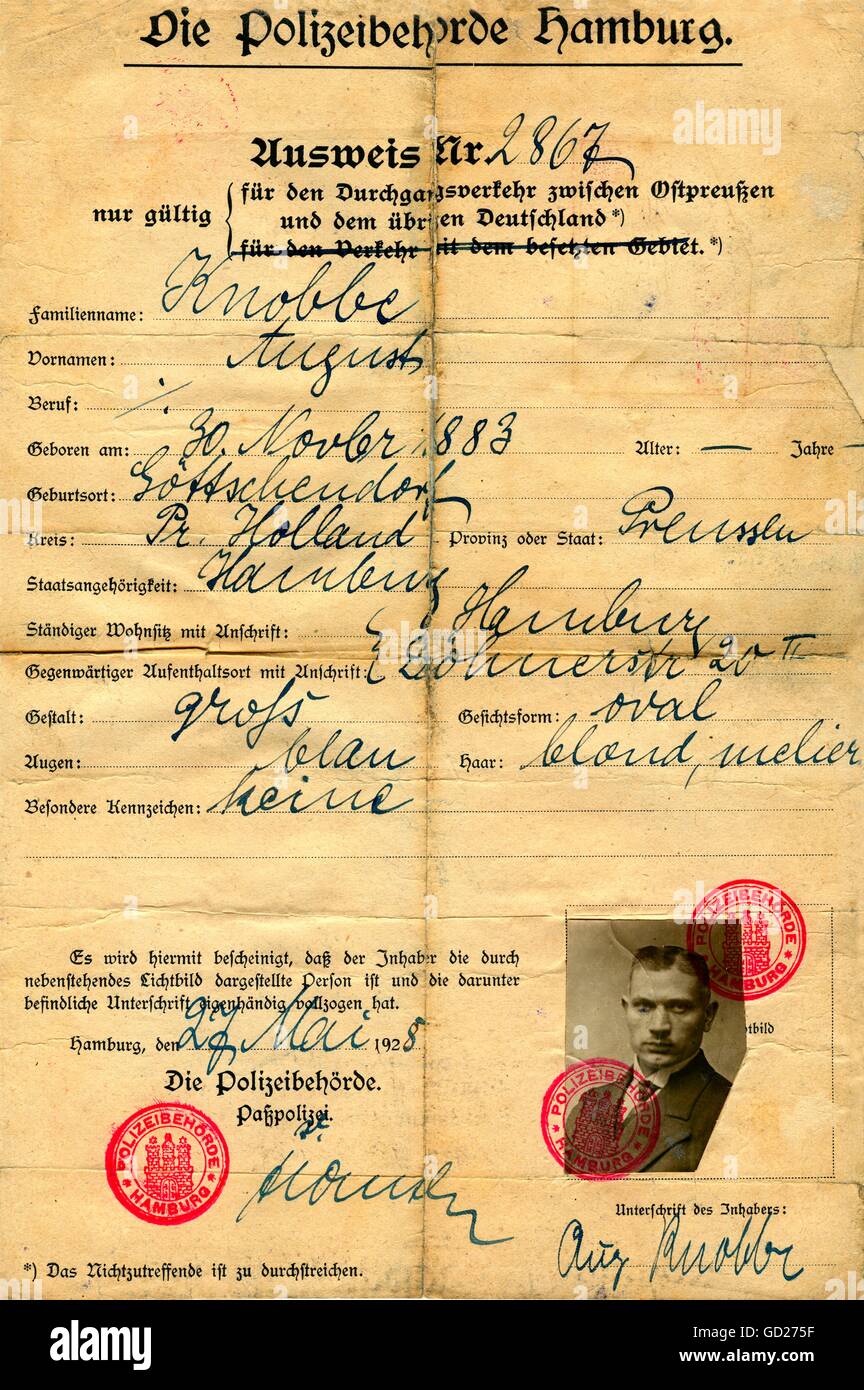 Die Polizeibehörde Hamburg.
Ausweis Nr. 2867
nur gültig { für den Durchgangsverkehr zwischen Ostpreußen
und dem übrigen Deutschland *)
für den Verkehr mit dem besetzten Gebiet. *)
Familienname: Knobbe
Vornamen: August
Beruf: ./.
Geboren am: 30. Novbr 1883 Alter: — Jahre —
Geburtsort: Göttschendorf
Kreis: Pr. Holland Provinz oder Staat: Preussen
Staatsangehörigkeit: Hamburg
Ständiger Wohnsitz mit Anschrift: { Hamburg
Gegenwärtiger Aufenthaltsort mit Anschrift: 20 II
Gestalt: gross Gesichtsform: oval
Augen: blau Haar: blond, melier
Besondere Kennzeichen: keine
Es wird hiermit bescheinigt, daß der Inhaber die durch
nebenstehendes Lichtbild dargestellte Person ist und die darunter
befindliche Unterschrift eigenhändig vollzogen hat.
Hamburg, den 27 Mai 1928
Die Polizeibehörde.
Paßpolizei.
POLIZEIBEHÖRDE HAMBURG
POLIZEIBEHÖRDE HAMBURG
POLIZEIBEHÖRDE HAMBURG
tbild
Unterschrift des Inhabers:
Aug Knobbe
*) Das Nichtzutreffende ist zu durchstreichen.
alamy
a
alamy
Image ID: GD275F
www.alamy.com